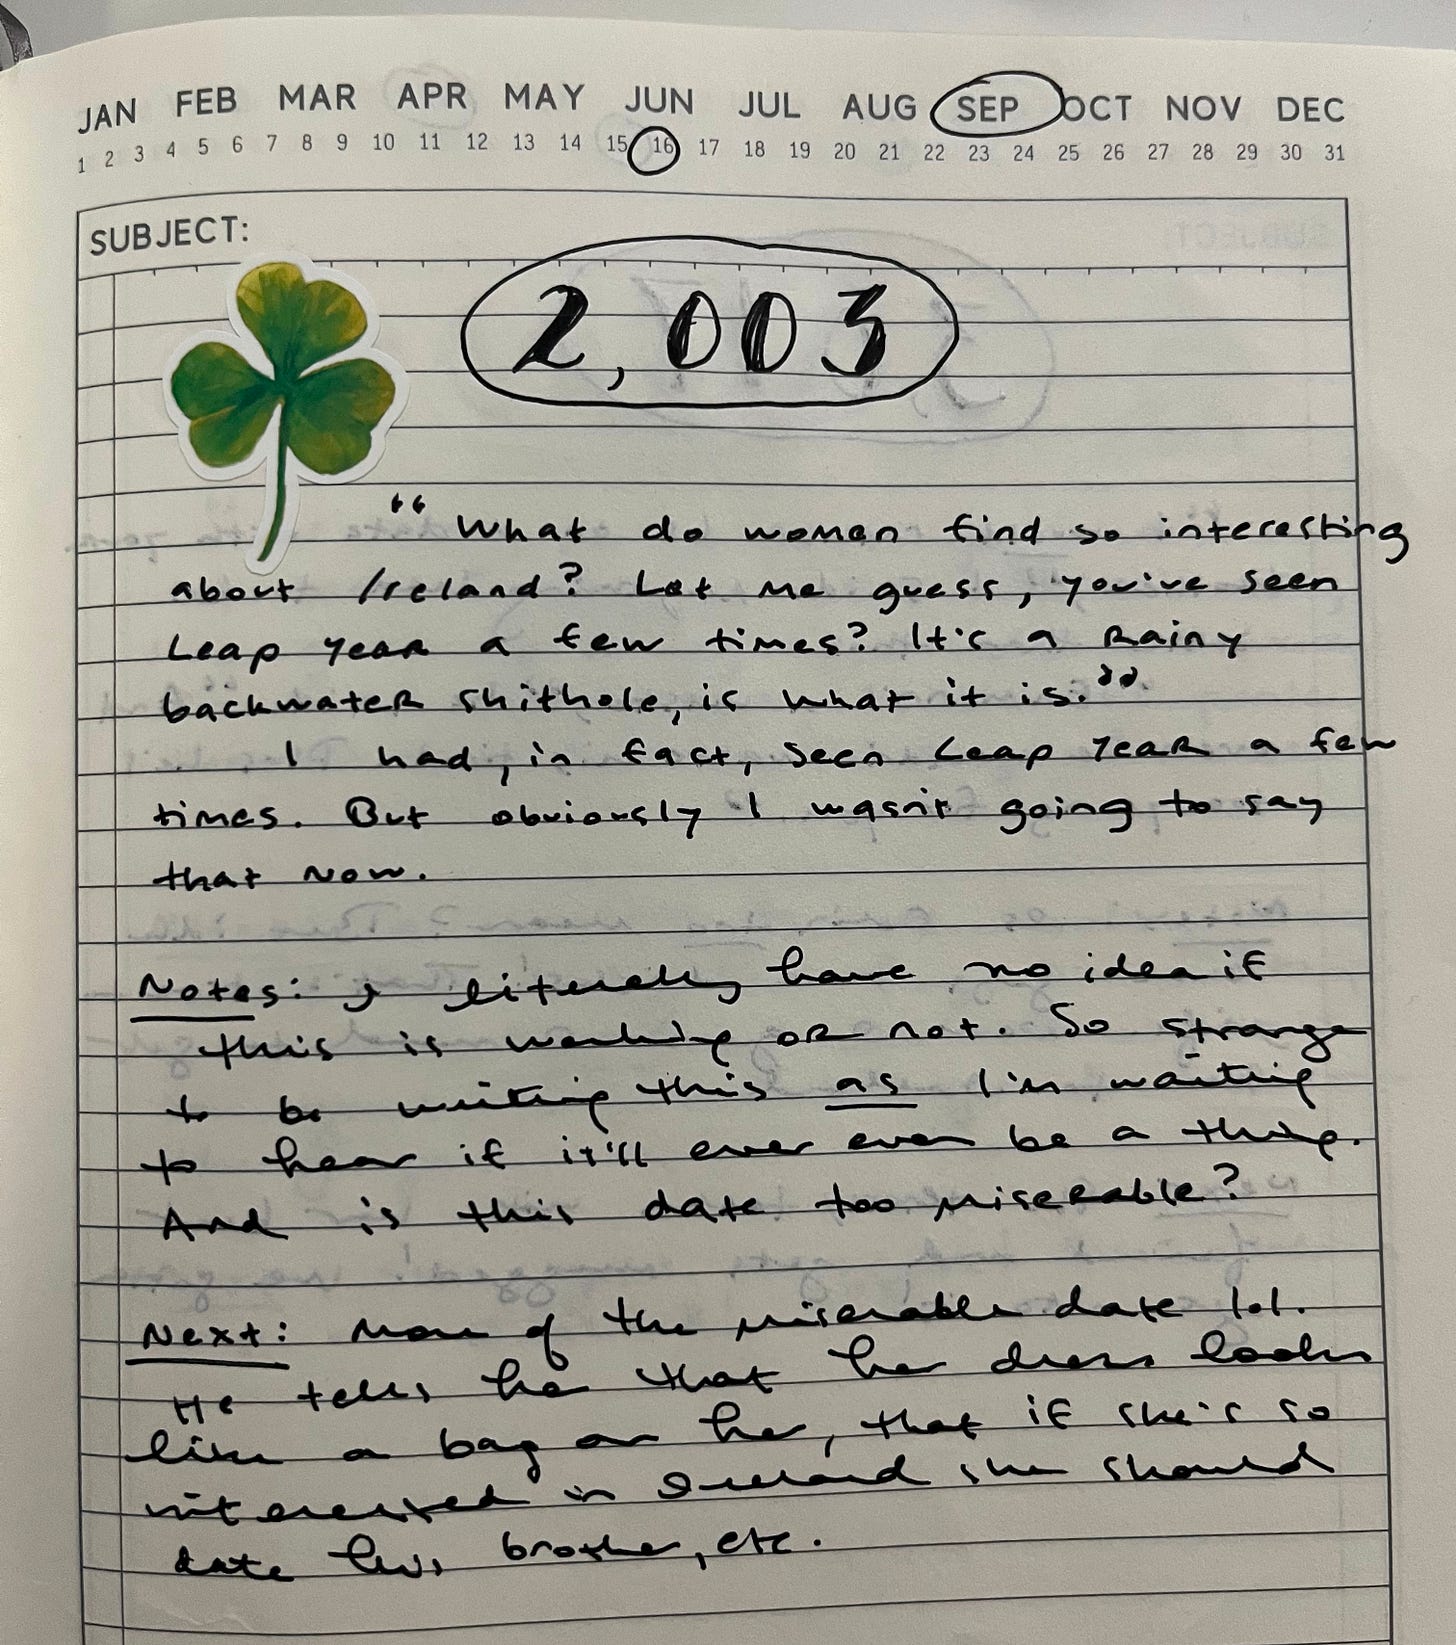 JAN FEB MAR APR MAY JUN JUL AUG SEP OCT NOV DEC
1 2 3 4 5 6 7 8 9 10 11 12 13 14 15 16 17 18 19 20 21 22 23 24 25 26 27 28 29 30 31
SUBJECT:
2,003
"What do women find so interesting
about Ireland? Let me guess, you've seen
Leap Year a few times? It's a rainy
backwater shithole, is what it is."
I had, in fact, seen Leap Year a few
times. But obviously I wasn't going to say
that now.
Notes: I literally have no idea if
this is working or not. So strange
to be writing this as I'm waiting
to hear if it'll ever even be a thing.
And is this date too miserable?
Next: More of the miserable date lol.
He tells her that her dress looks
like a bag on her, that if she's so
interested in Ireland she should
date his brother, etc.